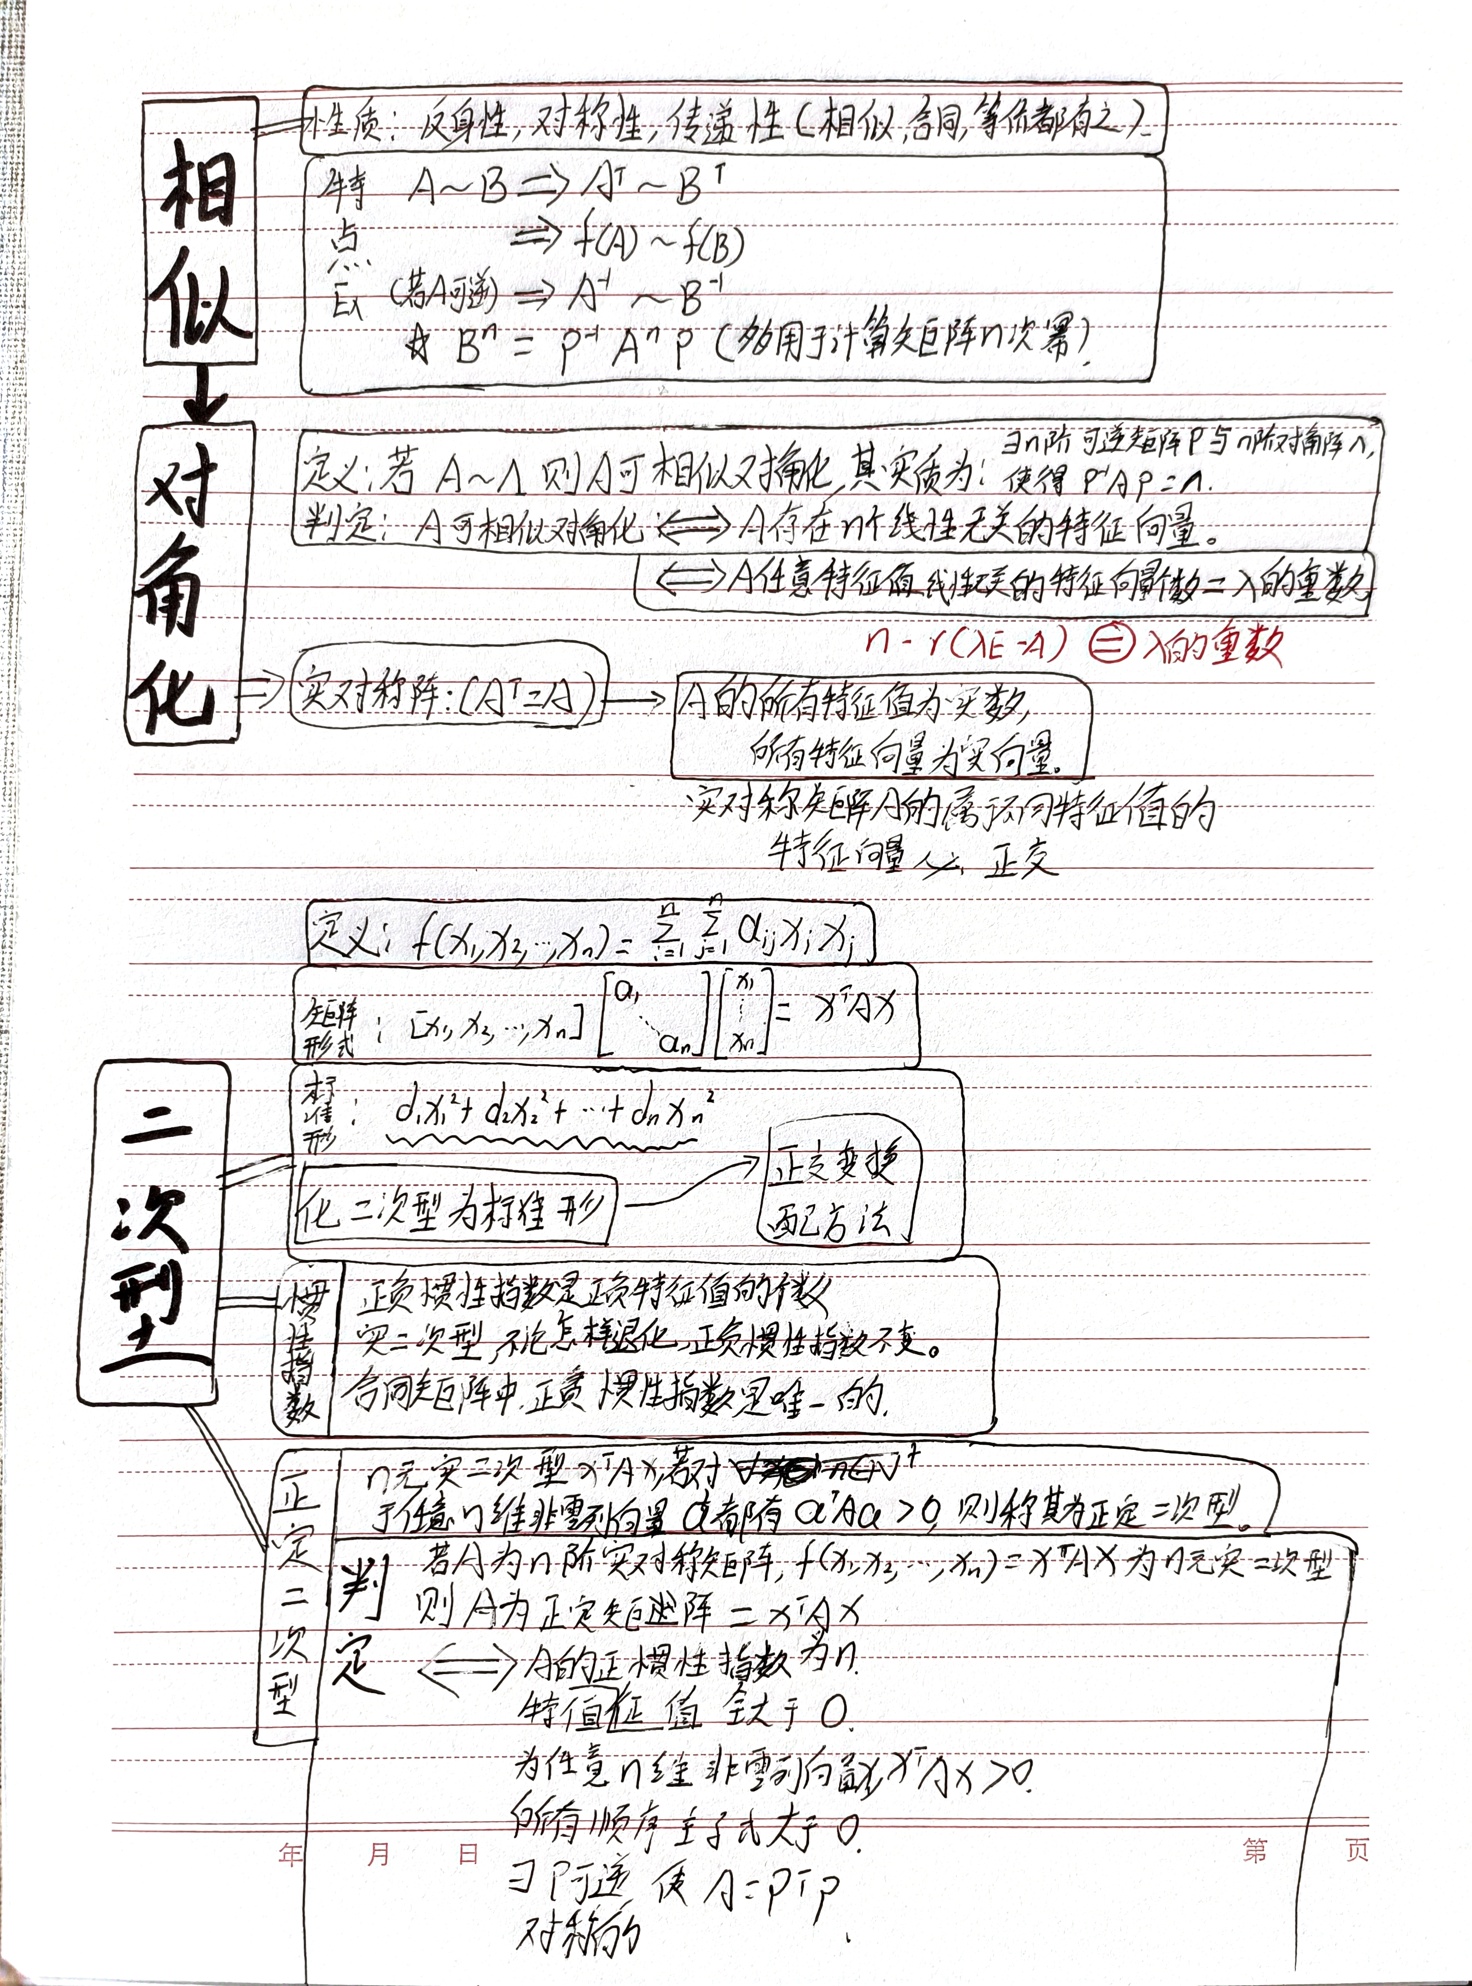 相似
性质：反身性，对称性，传递性（相似，合同，等价都有之）
特点 A～B ⟹ Aᵀ～Bᵀ
⟹ f(A)～f(B)
（若A可逆）⟹ A⁻¹～B⁻¹
☆ Bⁿ = P⁻¹AⁿP（多用于计算矩阵n次幂）
对角化
定义：若 A～Λ 则A可相似对角化，其实质为：∃n阶可逆矩阵P与n阶对角阵Λ，
使得 P⁻¹AP=Λ.
判定：A可相似对角化 ⟺ A存在n个线性无关的特征向量。
⟺ A任意特征值线性无关的特征向量个数＝λ的重数
n-r(λE-A) ＝ λ的重数
⟹ 实对称阵：（Aᵀ=A）→ A的所有特征值为实数，
所有特征向量为实向量。
实对称矩阵A的属于不同特征值的
特征向量必正交
二次型
定义：f(x₁,x₂,…,xₙ)= Σⁿᵢ₌₁ Σⁿⱼ₌₁ aᵢⱼxᵢxⱼ
矩阵形式：[x₁,x₂,…,xₙ] [a₁ ⋱ aₙ] [x₁ ⋮ xₙ] = xᵀAx
标准形：d₁x₁²+d₂x₂²+…+dₙxₙ²
化二次型为标准形 → 正交变换
配方法
惯性指数
正负惯性指数是正负特征值的个数
实二次型，不论怎样退化，正负惯性指数不变。
合同矩阵中，正负惯性指数是唯一的.
正定二次型
n元实二次型xᵀAx，若对
于任意n维非零列向量α都有αᵀAα>0，则称其为正定二次型。
判定
若A为n阶实对称矩阵，f(x₁,x₂,…,xₙ)=xᵀAx为n元实二次型
则A为正定矩阵 = xᵀAx
⟺ A的正惯性指数为n.
特值征值全大于0.
为任意n维非零列向量x，xᵀAx>0.
所有顺序主子式大于0.
∃P可逆，使A=PᵀP
对称的
年 月 日 第 页